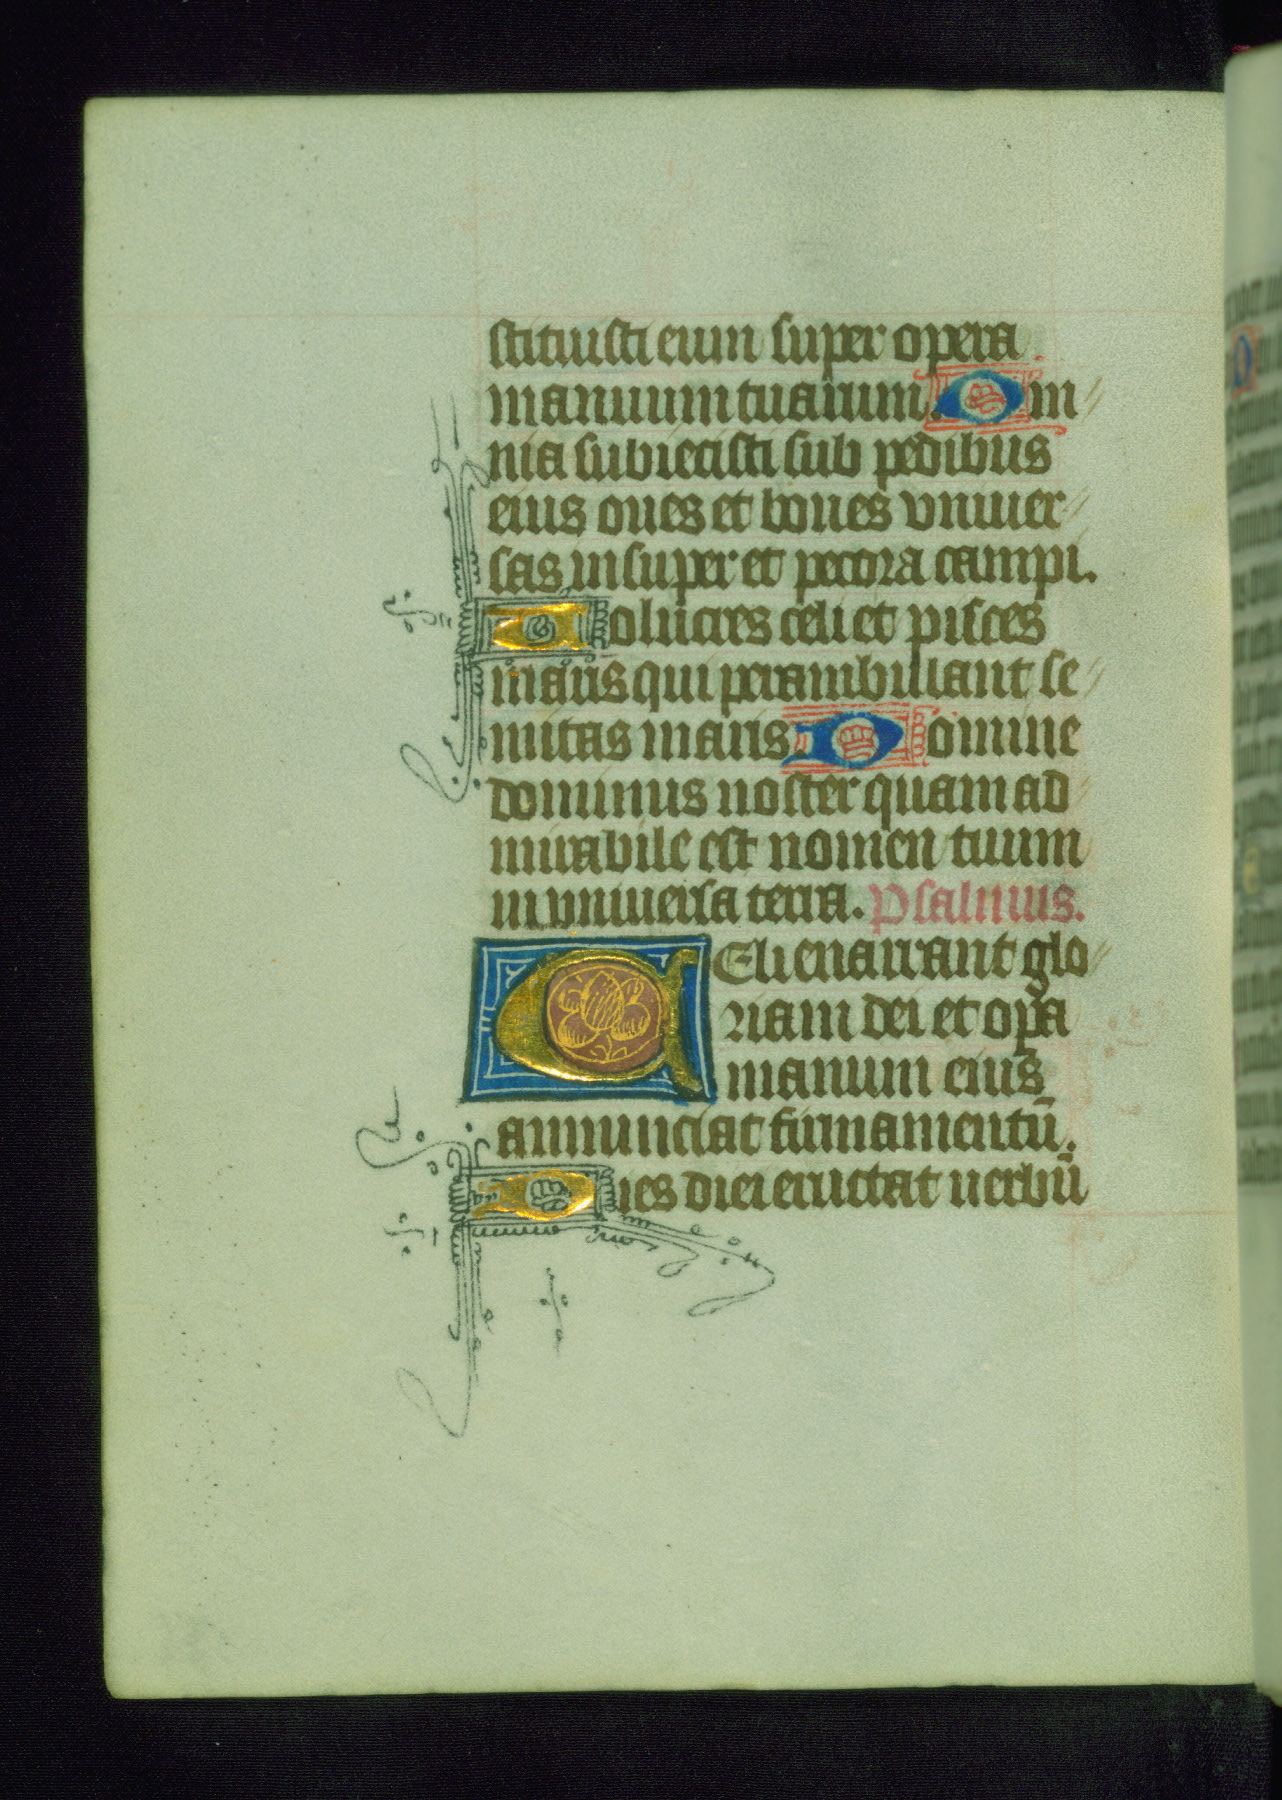 stituisti eum super opera
manuum tuarum. Om
nia subiecisti sub pedibus
eius oues et boues vniuer
sas insuper et pecora campi.
Uolucres celi et pisces
maris qui perambulant se
mitas maris. Domine
dominus noster quam ad
mirabile est nomen tuum
in vniuersa terra. Psalmus.
CEli enarrant glo
riam dei et opa
manuum eius
annunciat firmamentū.
Dies diei eructat uerbū